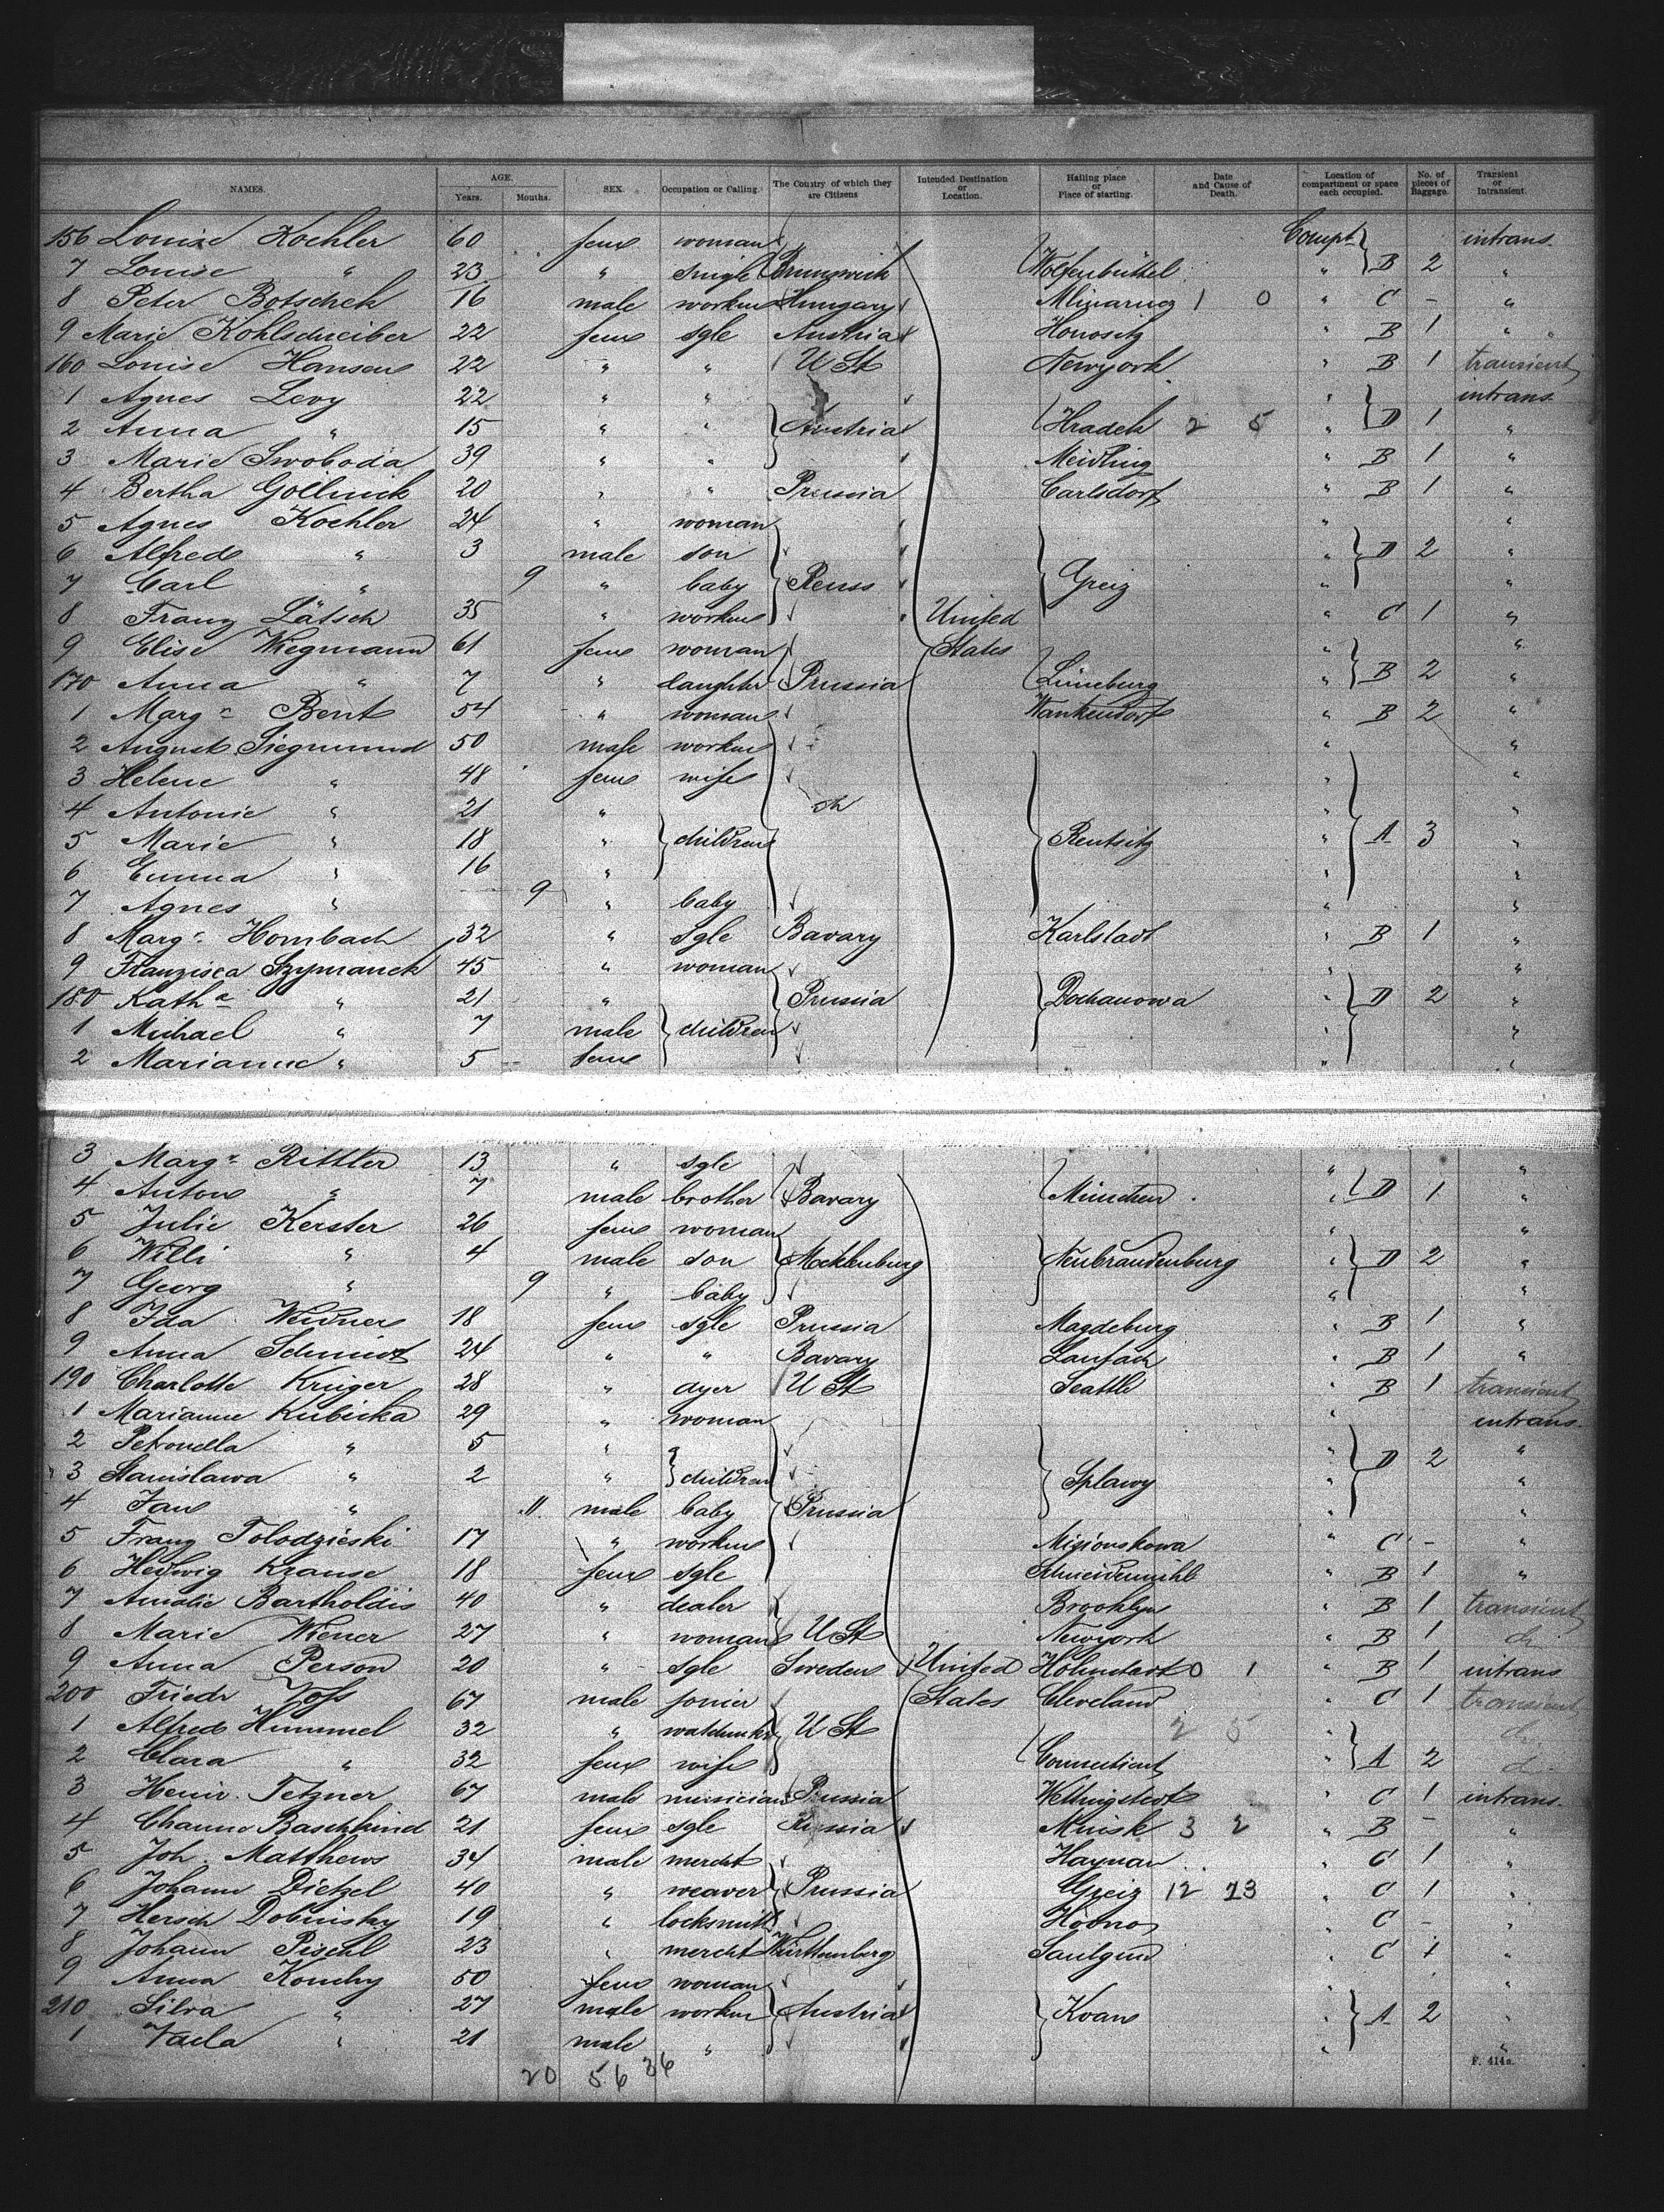 NAMES. AGE. Years. Months. SEX. Occupation or Calling. The Country of which they are Citizens Intended Destination or Location. Hailing place or Place of starting. Date and Cause of Death. Location of compartment or space each occupied. No. of pieces of Baggage. Transient or Intransient.
156 Louise Koehler 60 fem woman " Compt intrans.
7 Louise " 23 " single Brunswick Wolfenbüttel " B 2 "
8 Peter Botschek 16 male worker Hungary 1 0 " C - "
9 Marie Kohlschreiber 22 fem sgle Austria Honositz " B 1 "
160 Louise Hansen 22 " " U St Newyork " B 1 transient
1 Agnes Levy 22 " " " intrans
2 Anna " 15 " " Austria Hradek 2 5 " D 1 "
3 Marie Swoboda 39 " " Meidling " B 1 "
4 Bertha Gollnick 20 " " Prussia Carlsdorf " B 1 "
5 Agnes Koehler 24 " woman " "
6 Alfred " 3 male son " D 2 "
7 Carl " 9 " baby Reuss Greiz " "
8 Franz Lätsch 35 " worker United " C 1 "
9 Elise Wiegmann 61 fem woman States " "
170 Anna " 7 " daughter Prussia Lüneburg " B 2 "
1 Marg. Bent 54 " woman Wankendorf " B 2 "
2 August Siegmund 50 male worker " "
3 Helene " 48 fem wife " "
4 Antonie " 21 " " "
5 Marie " 18 " children Rentsitz " A 3 "
6 Emma " 16 " " "
7 Agnes " 9 " baby " "
8 Marg. Hombach 32 " sgle Bavary Karlstadt " B 1 "
9 Franzisca Szymanek 45 " woman " "
180 Kath a " 21 " Prussia Dochanowa " D 2 "
1 Michael " 7 male children " "
2 Marianne " 5 fem " "
3 Marg. Rittler 13 " sgle " "
4 Anton " 7 male brother Bavary München " D 1 "
5 Julie Kerster 26 fem woman " "
6 Willi " 4 male son Mecklenburg Neubrandenburg " D 2 "
7 Georg " 9 " baby " "
8 Ida Weidner 18 fem sgle Prussia Magdeburg " B 1 "
9 Anna Schmidt 24 " " Bavary Laufach " B 1 "
190 Charlotte Krüger 28 " dyer U St Seattle " B 1 transient
1 Marianne Kubicka 29 " woman " intrans.
2 Petronella " 5 " " D 2 "
3 Stanislawa " 2 " children Splawy " "
4 Jan " 11 male baby Prussia " "
5 Franz Tolodzieski 17 " worker " C - "
6 Hedwig Krause 18 fem sgle Schneidemühl " B 1 "
7 Amalie Bartholdis 40 " dealer Brooklyn " B 1 transient
8 Marie Wiener 27 " woman U St Newyork " B 1 do
9 Anna Person 20 " sgle Sweden United Holmstadt 0 1 " B 1 intrans
200 Friedr Voss 67 male jonier States Cleveland " C 1 transient
1 Alfred Hummel 32 " U St 2 5 " do
2 Clara " 32 fem wife Connecticut " A 2 do
3 Heinr. Tetzner 67 male musician Prussia Wellingstedt " C 1 intrans.
4 Channe Baschkind 21 fem sgle Russia Minsk 3 2 " B - "
5 Joh. Matthews 34 male mercht Haynau " C 1 "
6 Johann Dietzel 40 " weaver Prussia Greiz 12 23 " C 1 "
7 Hersch Dobinsky 19 " locksmith " C - "
8 Johann Pischl 23 " mercht Württemberg Saulgund " C 1 "
9 Anna Koudry 50 fem woman " "
210 Silva " 27 male worker Austria Koan " A 2 "
1 " 21 male " " "
20 56 36
F. 414a.